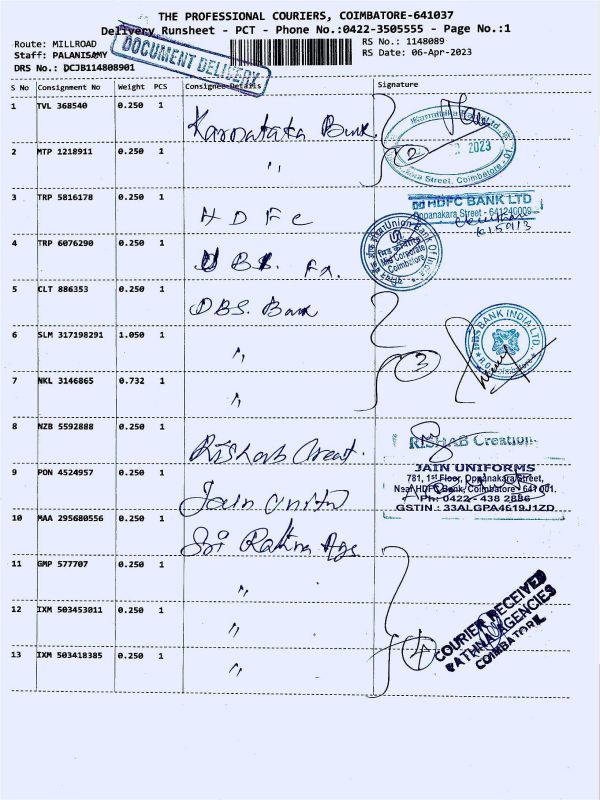 THE PROFESSIONAL COURIERS, COIMBATORE-641037
Delivery Runsheet - PCT - Phone No.:0422-3505555 - Page No.:1
Route: MILLROAD
RS No.: 1148089
Staff: PALANISAMY
RS Date: 06-Apr-2023
DRS No.: DCJB114808901
DOCUMENT DELIVERY
S No Consignment No Weight PCS Consignee Details Signature
1 TVL 368540 0.250 1 Karnataka Bank
2 MTP 1218911 0.250 1 "
2
2023
Street, Coimbatore - 01.
3 TRP 5816178 0.250 1 HDFC
HDFC BANK LTD
Oppanakara Street - 641240009
4 TRP 6076290 0.250 1
Union Bank Of India
Mid Corporate
Coimbatore
5 CLT 886353 0.250 1 DBS. Bank
6 SLM 317198291 1.050 1 "
3
DBS BANK INDIA LTD.
7 NKL 3146865 0.732 1 "
8 NZB 5592888 0.250 1 Rishab Creat.
RISHAB Creation
9 PON 4524957 0.250 1 Jain Unifm
JAIN UNIFORMS
781, 1st Floor, Oppanakara Street,
Near HDFC Bank, Coimbatore - 641 001.
Ph: 0422 - 438 2886
GSTIN : 33ALGPA4619J1ZD
10 MAA 295680556 0.250 1 Sri Rathna Ags
11 GMP 577707 0.250 1 "
12 IXM 503453011 0.250 1 "
13 IXM 503418385 0.250 1 "
4
COURIER RECEIVED
RATHNA AGENCIES
COIMBATORE